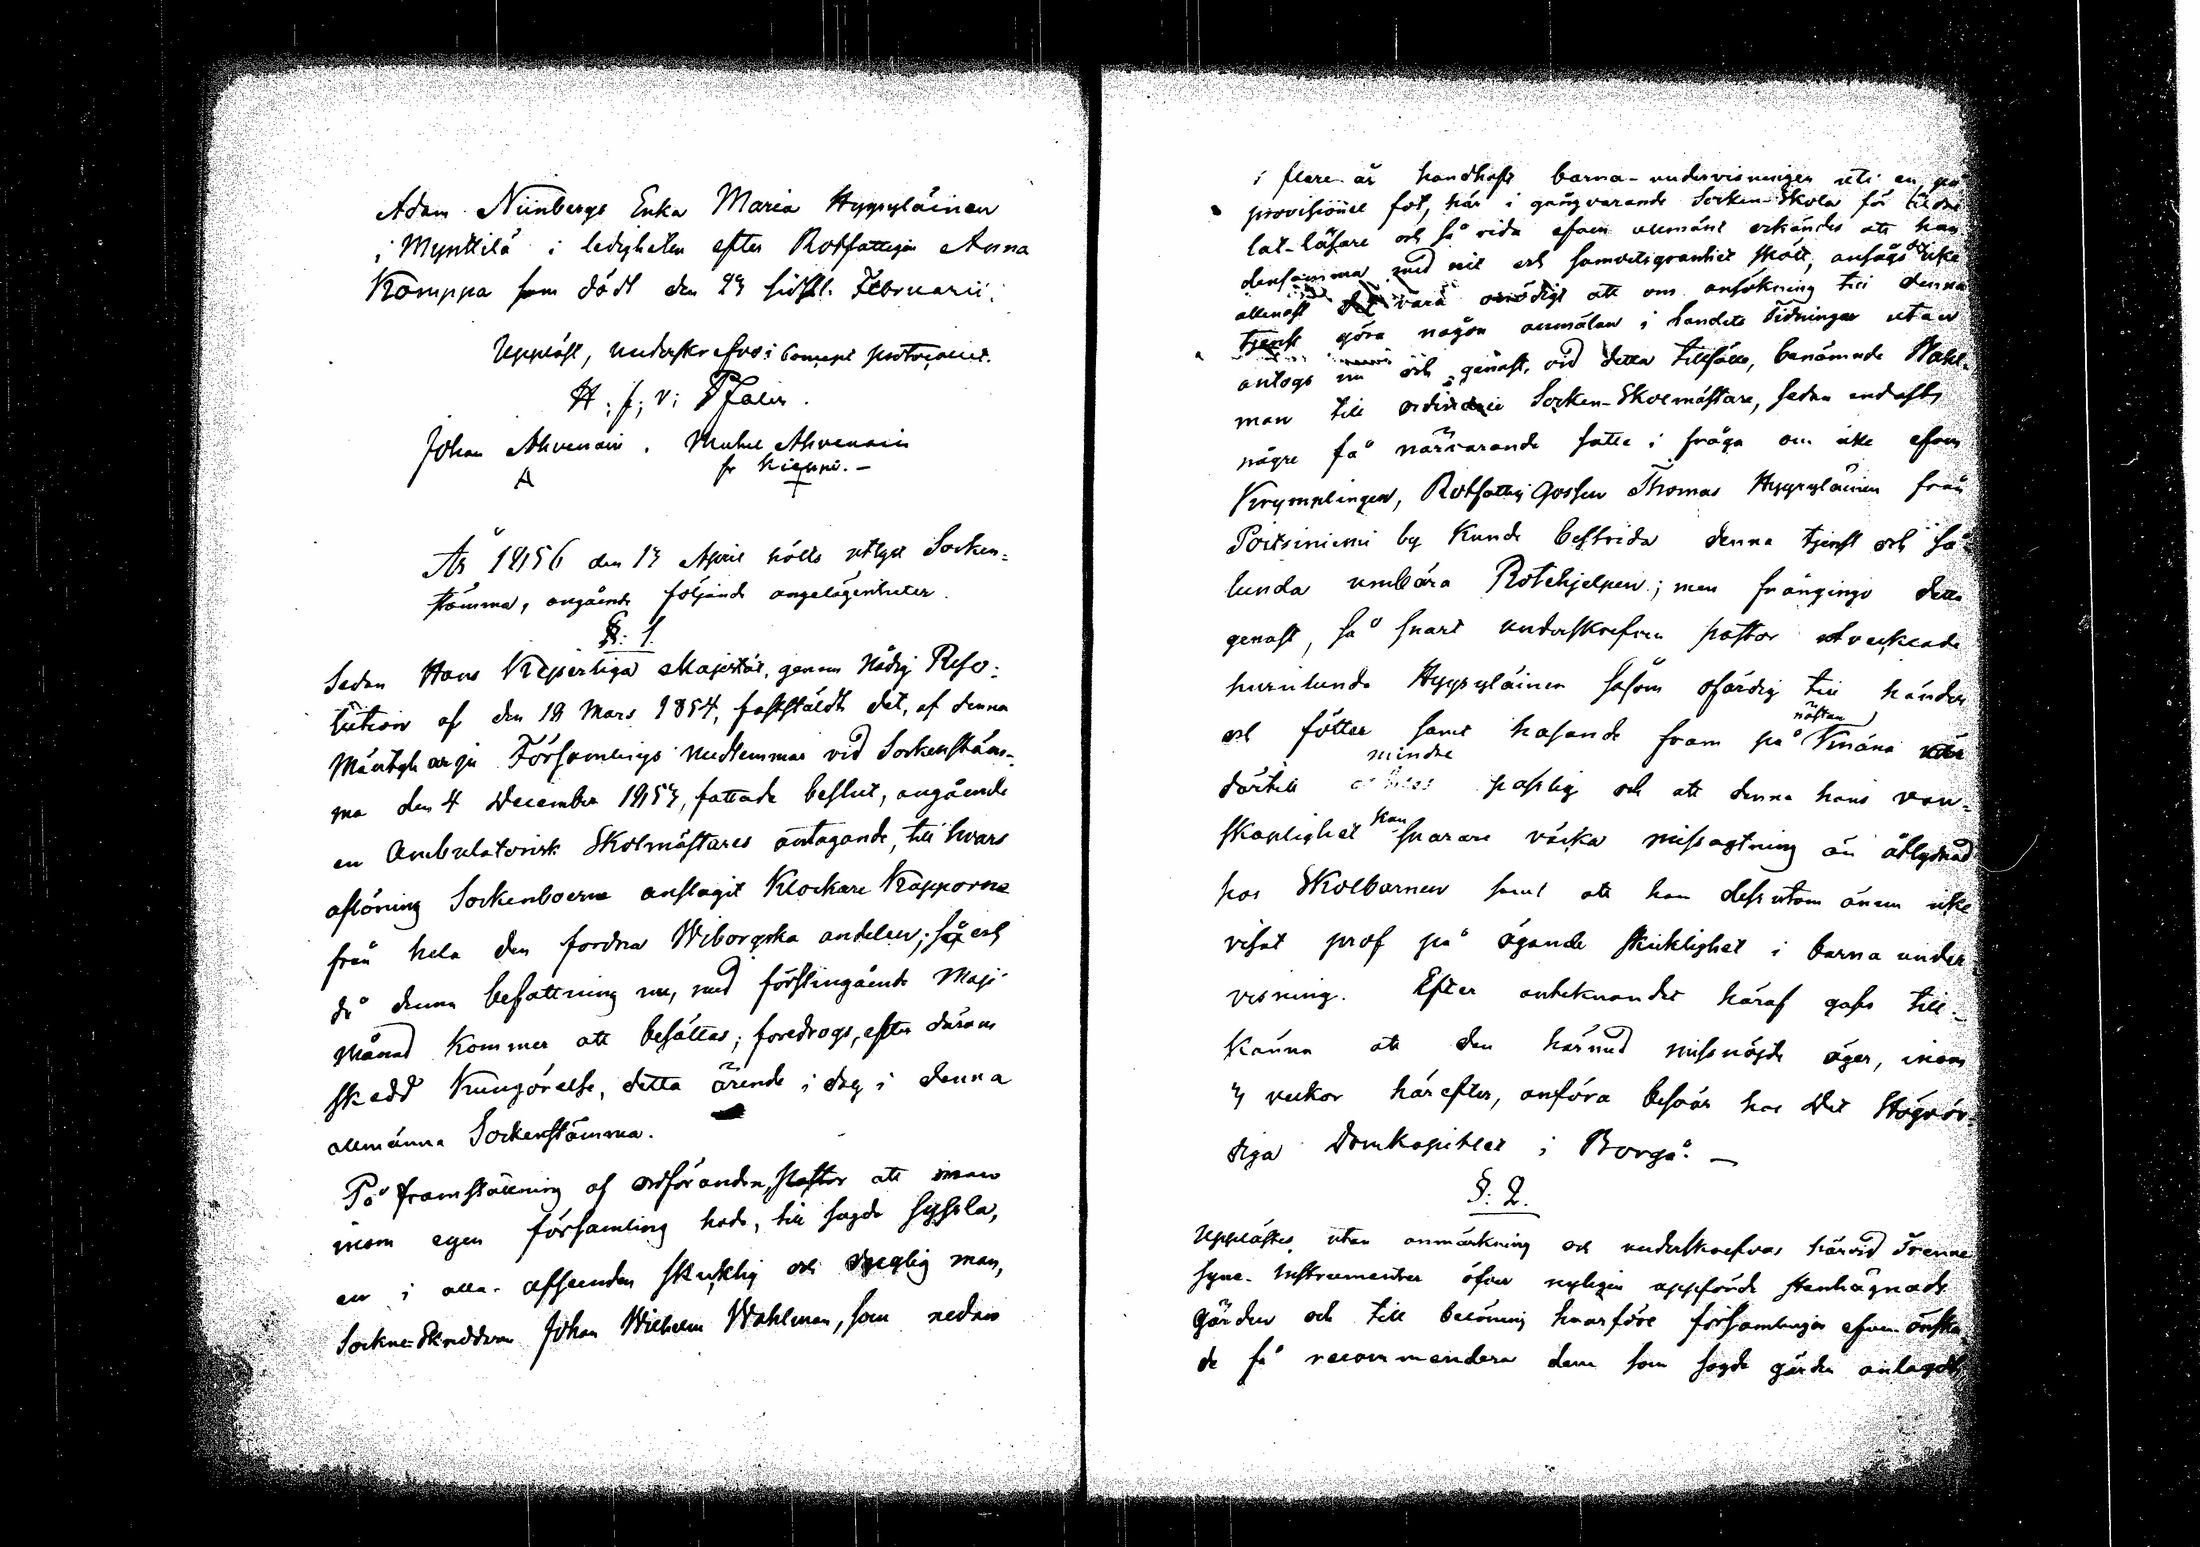 Adam Niinbergs Enka Maria Hyyryläinen
i Mynttilä i ledigheten efter Rotfattigen Anna
Komppa som dödt den 23 sistl. Februarii.
Uppläst, underskrefvos i Concept protocollet.
H. f; v: P Jalin.
Johan Ahvenain. Michel Ahvenain
A fr Kieppi. —
År 1856 den 13 April hölls utlyst Socken-
stämma, angående följande angelägenheter.
§. 1.
Sedan Hans Kejserliga Majestät, genom Nådig Reso-
lution af den 18 Mars 1854, fastställdt det, af denna
Mäntyharju Församlings medlemmar vid Sockenstäm-
ma den 4 December 1853, fattade beslut, angående
en Ambulatorisk Skolmästares antagande, till hvars
aflöning Sockenboerne anslagit Klockare Kapporne
från hela den fordna Wiborgska andelen; så ock
då denna befattning nu, med förstingående Maji
Månad kommer att besättas; foredrogs, efter därom
skedd Kungörelse, detta ärende i dag i denna
allmänna Sockenstämma.
På framställning af ordföranden, Pastor att man
inom egen församling hade, till sagde syssla,
en i alla afseenden skicklig och duglig man,
Sockne-Skräddaren Johan Wilhelm Wahlman, som redan
i flere år handhaft barna-undervisningen uti en, på
provisionel fot, här i gång varande Socken-Skola för
lat-läsare och så vida äfven allmänt erkändes att han
densamma med nit och samvetsgranhet skött, ansågs det icke
allenast vara onödigt att om ansökning till denna
tjenst göra någon anmälan i Landets Tidningar utan
antogs nu och genast, vid detta tillfälle, benämnde Wahl-
man till ordinarie Socken-Skolmästare, sedan endast
några få närvarande satte i fråga om icke äfven
Krymplingen, Rotfattig Gossen Thomas Hyyryläinen från
Poitsiniemi by kunde bestrida denna tjenst och så-
lunda umbära Rotehjelpen; men frångingo detta
genast, så snart underskrefven pastor utvecklade
hurulunda Hyyryläinen såsom ofärdig till händer
och fötter samt hasande fram på nästan Knäna vore
därtill mindre passlig och att denna hans van-
skaplighet kan snarare väcka missagtning än åtlydnad
hos Skolbarnen samt att han dessutom ännu icke
visat prof på ägande skicklighet i barna under-
visning. Efter antecknandet häraf gafs till-
känna att den härmed missnöjde äger, inom
3 veckor härefter, anföra besvär hos Det Högvör-
diga Domkapitlet i Borgå. —
§. 2.
Upplästes utan anmärkning och underskrefvos härvid Trenne
Syne-Instrumenter öfver nyligen uppförde stenhägnads
gärden och till belöning hvarföre församlingen äfven önska-
de få recommendera dem som sagde gärden anlagdt,